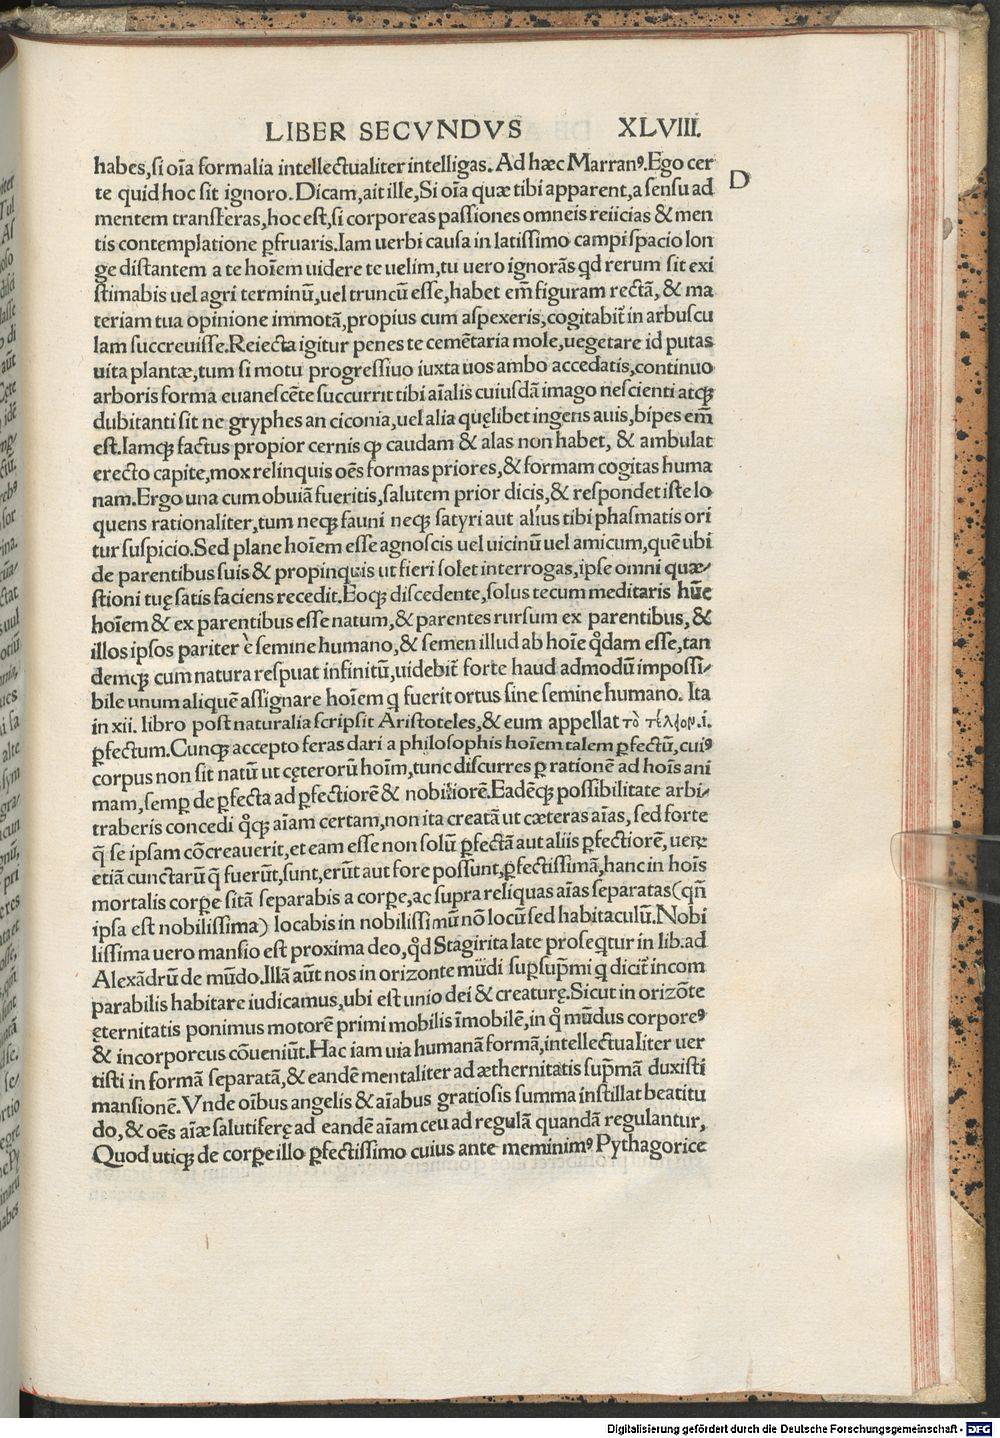 LIBER SECVNDVS XLVIII.
habes,si oīa formalia intellectualiter intelligas. Ad hæc Marranꝰ.Ego cer
te quid hoc sit ignoro. Dicam,ait ille,Si oīa quæ tibi apparent,a sensu ad
D
mentem transferas,hoc est,si corporeas passiones omneis reiicias & men
tis contemplatione ꝑfruaris.Iam uerbi causa in latissimo campi spacio lon
ge distantem a te hoīem uidere te uelim,tu uero ignorās qd rerum sit exi
stimabis uel agri terminū,uel truncū esse,habet em̄ figuram rectā, & ma
teriam tua opinione immotā,propius cum aspexeris,cogitabit̄ in arbuscu
lam succreuisse.Reiecta igitur penes te cemētaria mole,uegetare id putas
uita plantæ,tum si motu progressiuo iuxta uos ambo accedatis,continuo
arboris forma euanescēte succurrit tibi aīalis cuiusdā imago nescienti atqꝫ
dubitanti sit ne gryphes an ciconia,uel alia quęlibet ingens auis,bipes em̄
est.Iamqꝫ factus propior cernis ꝙ caudam & alas non habet, & ambulat
erecto capite,mox relinquis oēs formas priores,& formam cogitas huma
nam.Ergo una cum obuiā fueritis,salutem prior dicis,& respondet iste lo
quens rationaliter,tum neqꝫ fauni neqꝫ satyri aut alíus tibi phasmatis ori
tur suspicio.Sed plane hoīem esse agnoscis uel uicinū uel amicum,quē ubi
de parentibus suis & propinquis ut fieri solet interrogas,ipse omni quæ⸗
stioni tuę satis faciens recedit.Eoqꝫ discedente,solus tecum meditaris hūc
hoīem & ex parentibus esse natum,& parentes rursum ex parentibus, &
illos ipsos pariter è semine humano,& semen illud ab hoīe q̊dam esse,tan
demqꝫ cum natura respuat infinitū,uidebit̄ forte haud admodū impossi⸗
bile unum aliquē assignare hoīem q fuerit ortus sine semine humano. Ita
in xii. libro post naturalia scripsit Aristoteles,& eum appellat τὸ τέλφον.i.
ꝑfectum.Cunqꝫ accepto feras dari a philosophis hoīem talem ꝑfectū,cuiꝰ
corpus non sit natū ut cęterorū hoīm,tunc discurres ꝑ rationē ad hoīs ani
mam,semꝑ de ꝑfecta ad ꝑfectiorē & nobiliorē.Eadēqꝫ possibilitate arbi⸗
traberis concedi q̊qꝫ aīam certam,non ita creatā ut cæteras aīas, sed forte
q̄ se ipsam cōcreauerit,et eam esse non solū ꝑfectā aut aliis ꝑfectiorē, ueꝝ
etiā cunctarū q̄ fuerūt,sunt,erūt aut fore possunt,ꝑfectissimā,hanc in hoīs
mortalis corꝑe sitā separabis a corꝑe,ac supra reliquas aīas separatas(qn̄
ipsa est nobilissima) locabis in nobilissimū nō locū sed habitaculū.Nobi
lissima uero mansio est proxima deo,q̊d Stagirita late proseq̄tur in lib.ad
Alexādrū de mūdo.Illā aūt nos in orizonte mūdi suꝑsup̄mi q dicit̄ incom
parabilis habitare iudicamus,ubi est unio dei & creaturę.Sicut in orizōte
ęternitatis ponimus motorē primi mobilis īmobilē,in q̊ mūdus corporeꝰ
& incorporeus cōueniūt.Hac iam uia humanā formā,intellectualiter uer
tisti in formā separatā,& eandē mentaliter ad æthernitatis sup̄mā duxisti
mansionē.Vnde oībus angelis & aīabus gratiosis summa instillat beatitu
do,& oēs aīæ salutiferę ad eandē aīam ceu ad regulā quandā regulantur,
Quod utiqꝫ de corꝑe illo ꝑfectissimo cuius ante meminimꝰ Pythagorice
Digitalisierung gefördert durch die Deutsche Forschungsgemeinschaft - DFG